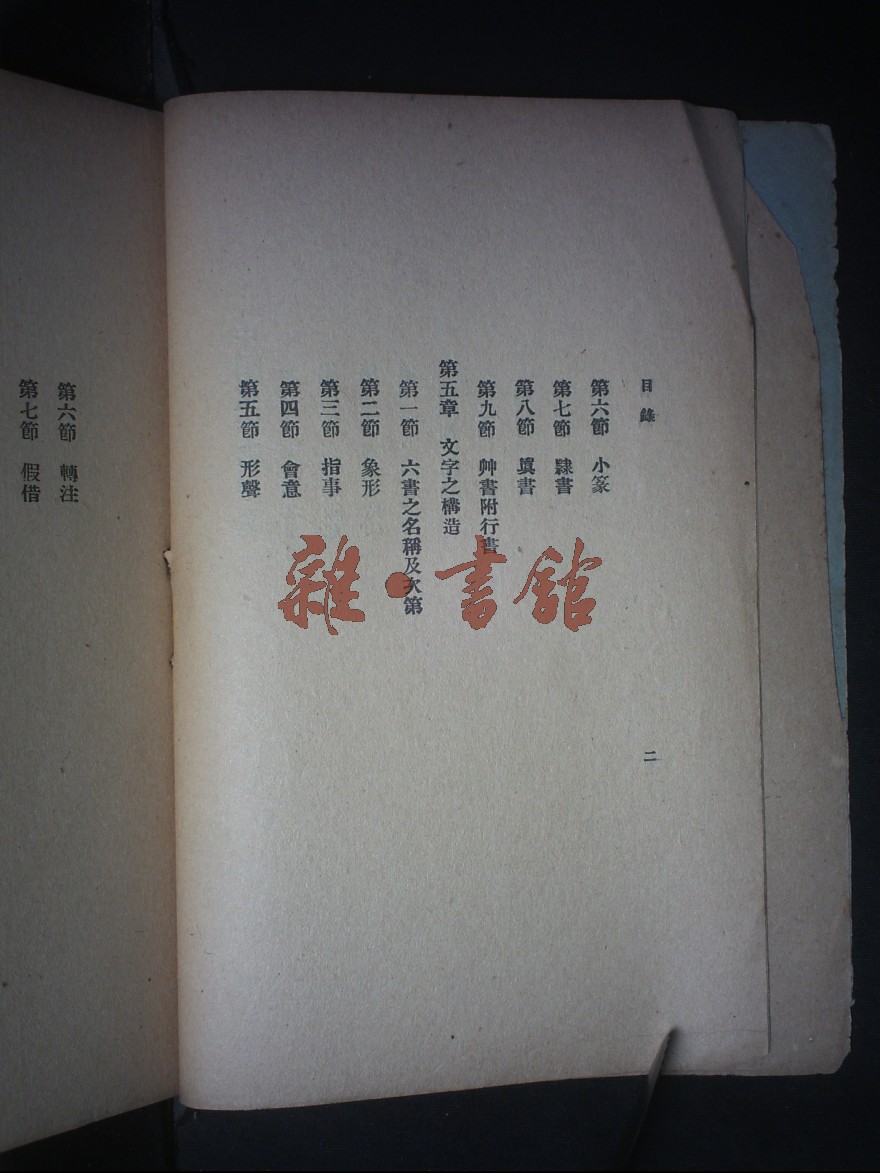 目錄
二
第六節 小篆
第七節 隸書
第八節 眞書
第九節 艸書附行書
第五章 文字之構造
第一節 六書之名稱及次第
第二節 象形
第三節 指事
第四節 會意
第五節 形聲
第六節 轉注
第七節 假借
雜·書館